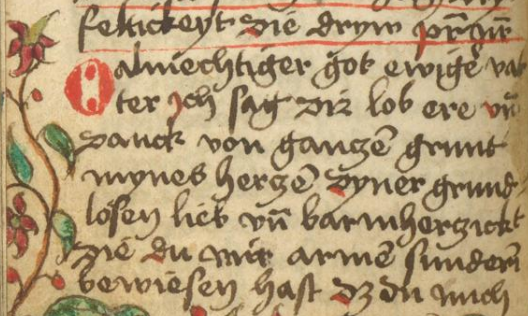 feltickeyt die dryw pr̄nr̄
Oalmechtiger got ewigē vat
ter ich sag dir lob ere vn̄
danck von gantzē grunt
mynes hertzē dyner grund
losen lieb vn̄ barmhertzickt
die du mir armē sunderī
bewiesen hast dz du mich